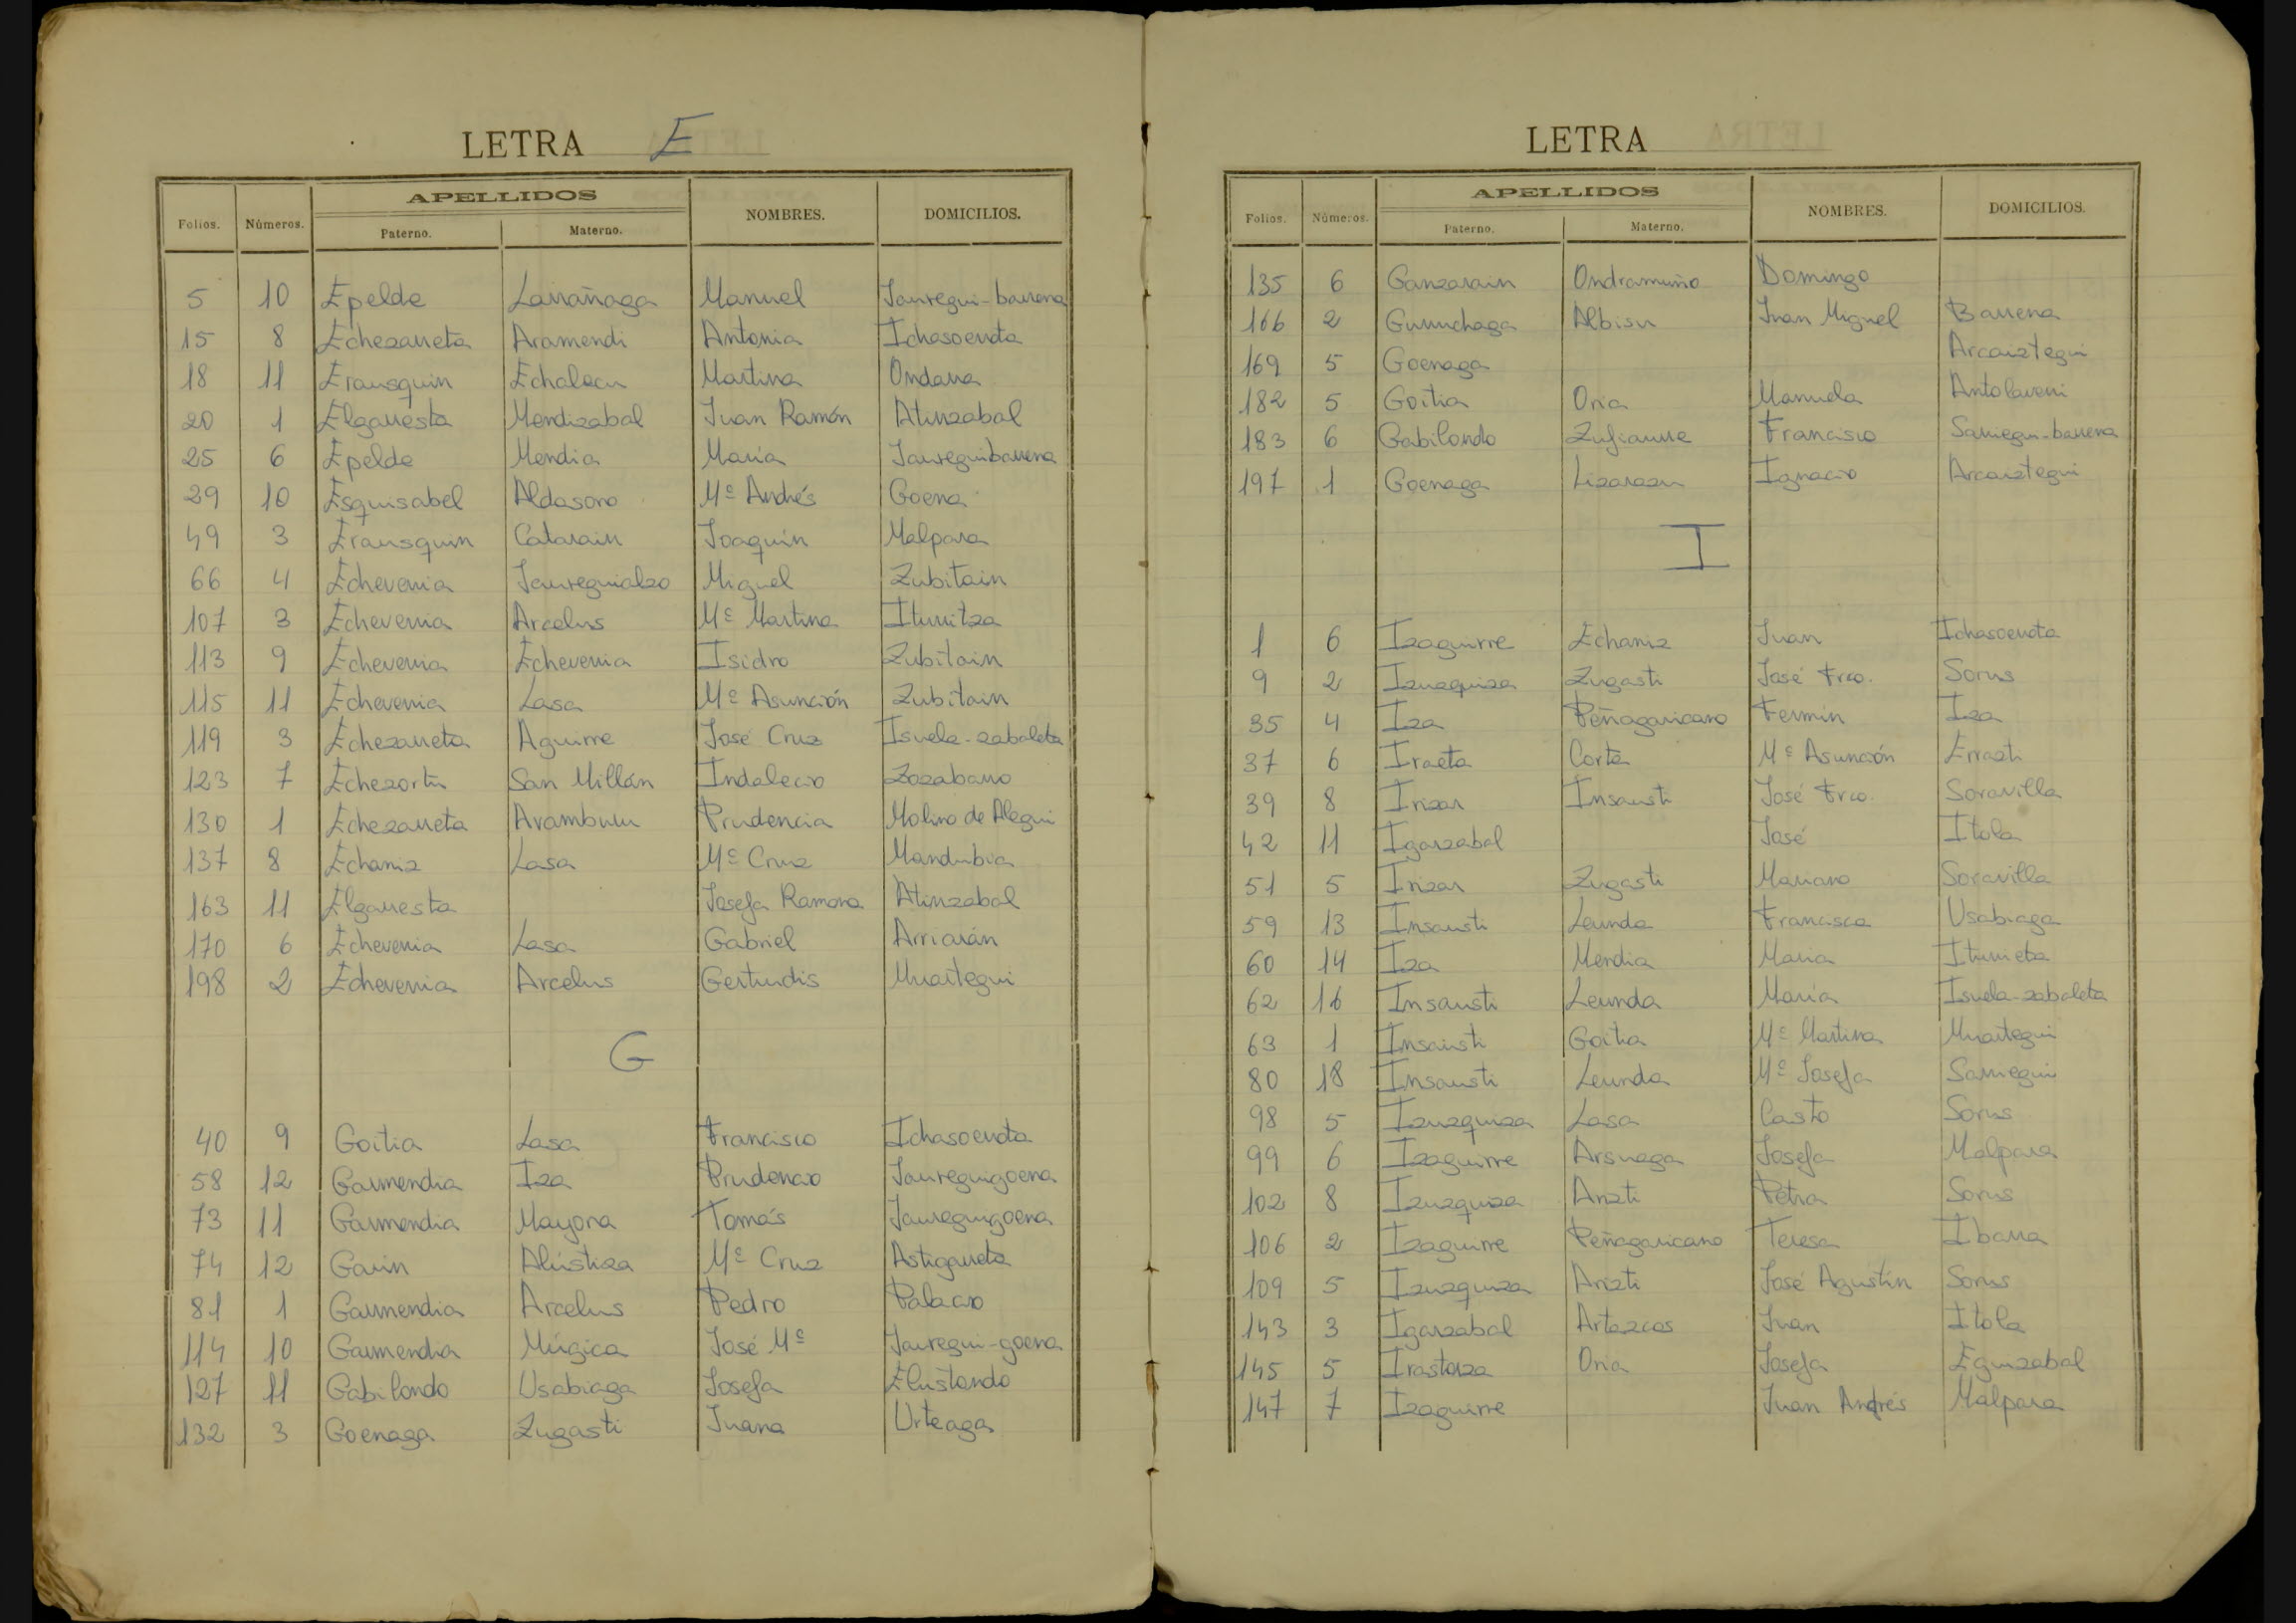 LETRA E
APELLIDOS
Folios. Números. Paterno. Materno. NOMBRES. DOMICILIOS.
5 10 Epelde Larrañaga Manuel Jauregui-barrena
15 8 Echezarreta Aramendi Antonia Ichasoerrota
18 11 Erausquin Echalecu Martina Ondarra
20 1 Elgarresta Mendizabal Juan Ramón Atinzabal
25 6 Epelde Mendia María Jaureguibarrena
29 10 Esquisabel Aldasoro Mª Andrés Goena
49 3 Erausquin Catarain Joaquín Malpara
66 4 Echeverria Jaureguialzo Miguel Zubitain
107 3 Echeverria Arcelus Mª Martina Iturritza
113 9 Echeverria Echeverria Isidro Zubitain
115 11 Echeverria Lasa Mª Asunción Zubitain
119 3 Echezarreta Aguirre José Cruz Isuela-zabaleta
123 7 Echezortu San Millán Indalecio Zozabarro
130 1 Echezarreta Aramburu Prudencia Molino de Alegui
137 8 Echaniz Lasa Mª Cruz Mandubia
163 11 Elgarresta Josefa Ramona Atinzabal
170 6 Echeverria Lasa Gabriel Arriarán
198 2 Echeverria Arcelus Gertrudis Muartegui
G
40 9 Goitia Lasa Francisco Ichasoerrota
58 12 Garmendia Iza Prudencio Jaureguigoena
73 11 Garmendia Mayora Tomás Jaureguigoena
74 12 Garin Alústiza Mª Cruz Astigarreta
81 1 Garmendia Arcelus Pedro Palacio
114 10 Garmendia Múgica José Mª Jauregui-goena
127 11 Gabilondo Usabiaga Josefa Elustondo
132 3 Goenaga Zugasti Juana Urteaga
LETRA
APELLIDOS
Folios. Números. Paterno. Materno. NOMBRES. DOMICILIOS.
135 6 Ganzarain Ondramuño Domingo
166 2 Gurruchaga Albisu Juan Miguel Barrena
169 5 Goenaga Arcaiztegui
182 5 Goitia Oria Manuela Antolaverri
183 6 Gabilondo Zufiaurre Francisco Sarriegui-barrena
197 1 Goenaga Lizarazu Ignacio Arcaiztegui
I
1 6 Izaguirre Echaniz Juan Ichasoerrota
9 2 Izuzquiza Zugasti José Frco. Sorus
35 4 Iza Peñagaricano Fermín Iza
37 6 Iraeta Corta Mª Asunción Errazti
39 8 Irizar Insausti José Frco. Soravilla
42 11 Igarzabal José Itola
51 5 Irizar Zugasti Mariano Soravilla
59 13 Insausti Leunda Francisca Usabiaga
60 14 Iza Mendia Maria Iturrieta
62 16 Insausti Leunda María Isuela-zabaleta
63 1 Insausti Goitia Mª Martina Muartegui
80 18 Insausti Leunda Mª Josefa Sarriegui
98 5 Izuzquiza Lasa Casto Sorus
99 6 Izaguirre Arsuaga Josefa Malpara
102 8 Izuzquiza Arizti Petra Sorus
106 2 Izaguirre Peñagaricano Teresa Ibarra
109 5 Izuzquiza Arizti José Agustín Sorus
143 3 Igarzabal Artazcos Juan Itola
145 5 Irastorza Oria Josefa Eguzabal
147 7 Izaguirre Juan Andrés Malpara